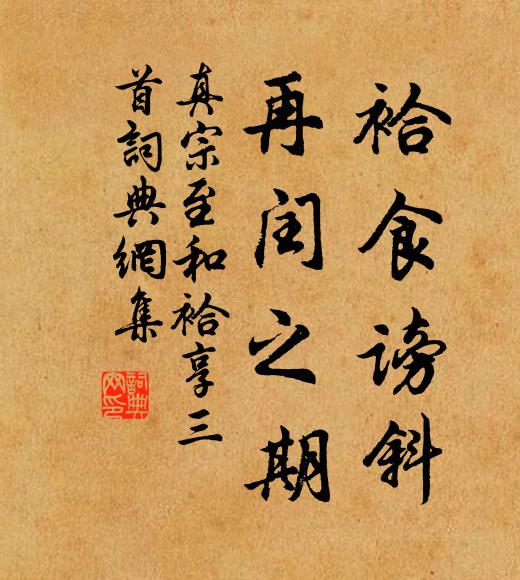 祫食謗斜
再閏之期
真宗至和祫享三
首詞典網集
詞典
网印